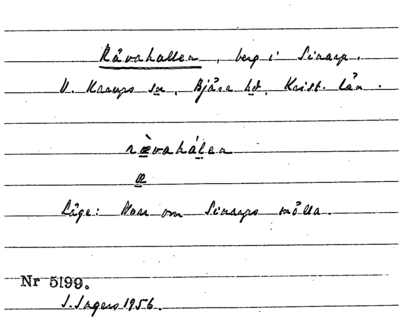 Råvahallen, berg i Sinarp.
V. Karups sn, Bjäre hd, Krist. län.
rævahálen
æ
Läge: Norr om Sinarps mölla.
Nr 5199.
S. Ingers 1956.